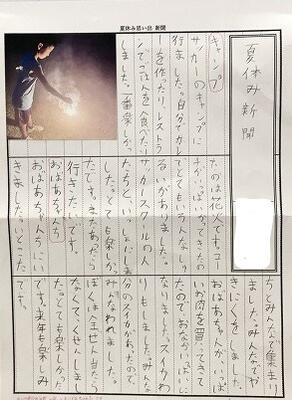 夏休み思い出 新聞
夏休み新聞
キャンプ
サッカーのキャンプに
行きました。自分でカレ
ーを作ったり、レストラ
ンでごはんを食べたり
しました。一番楽しかっ
たのは花火です。コー
チがいっぱいかってきたの
でとてもいろんなしゅ
るいがありました。
サッカースクールの人
たちと、いっしょに
した。とても楽しかっ
たです。またあったら
行きたいです。
おばあちゃんち
おばあちゃんちにい
きました。いとこた
ちとみんなで集まり
ました。みんなでや
きにくをしました。
おばあちゃんが、いっぱ
いお肉を買ってきて
たので、おなかいっぱいに
なりました。スイカわ
りもしました。みんな
自分のスイカがあったので、
みんなわれました。
ぼくは全ぜん当たら
なくて、くせんしまし
た。とても楽しかった
です。来年も楽しみ
です。